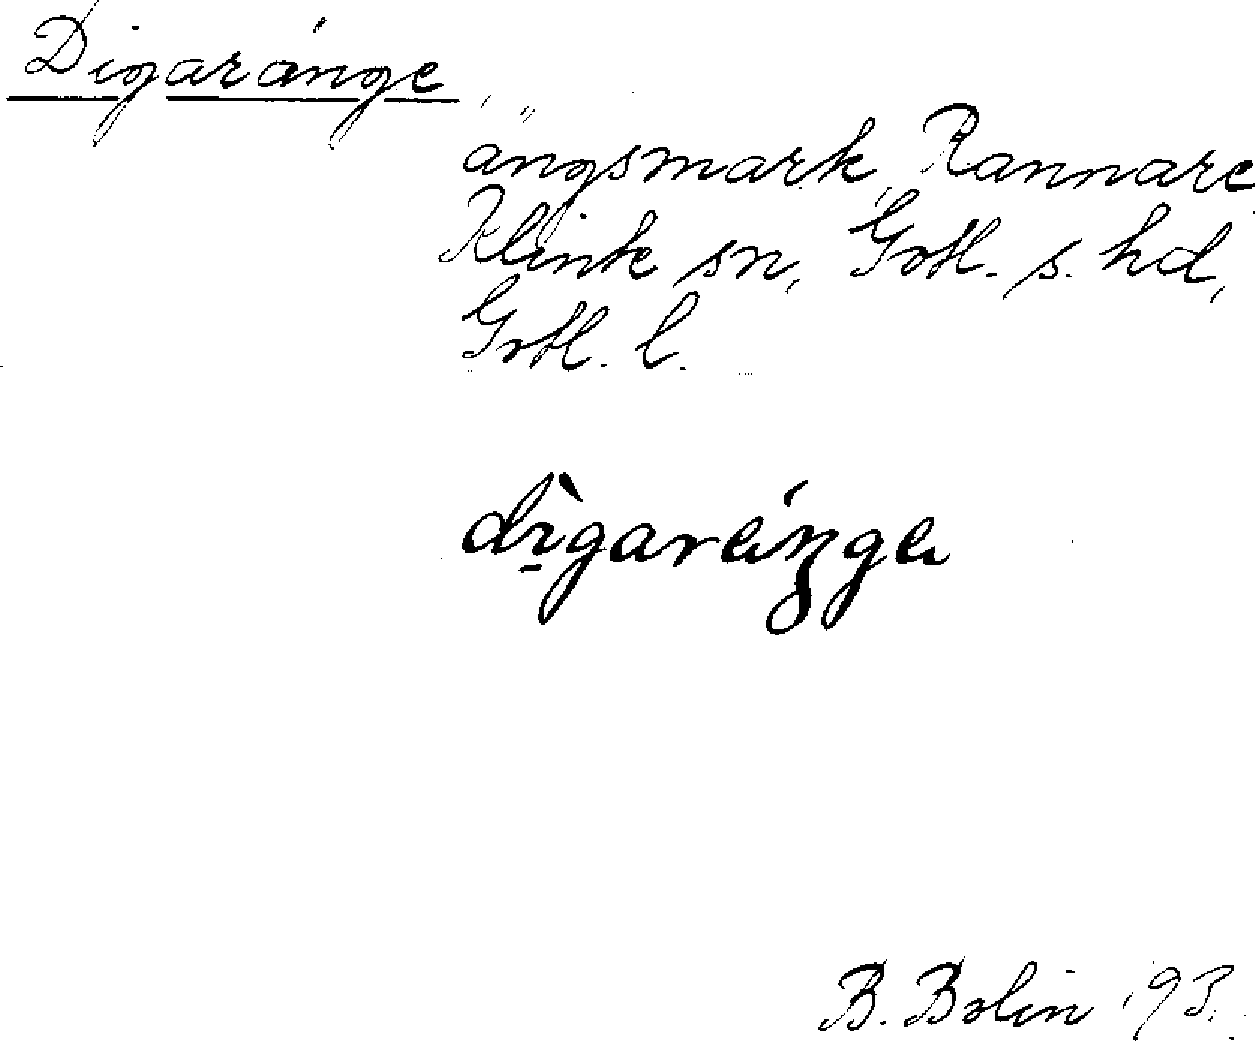 Digaränge
ängsmark, Rannare,
Klinte sn, Gotl. s. hd,
Gotl. l.
B. Bolin 193